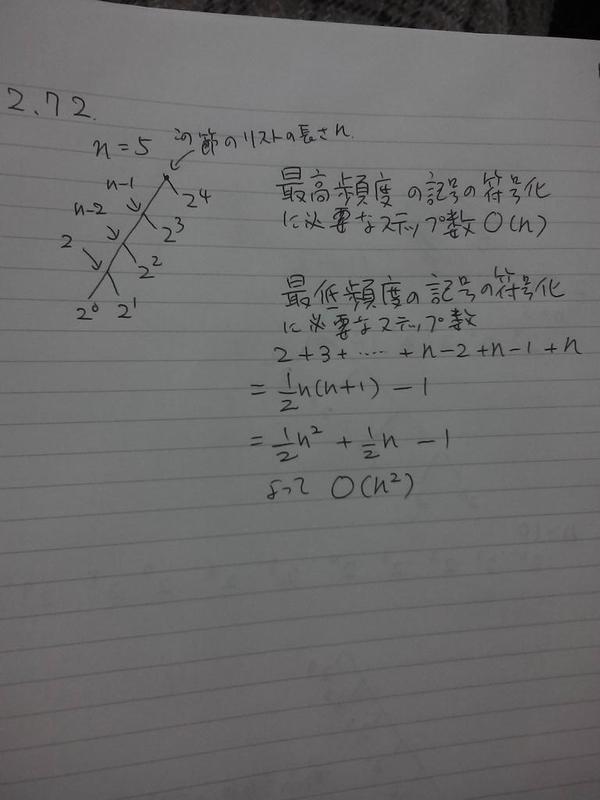 2.72.
n=5 この節のリストの長さn.
n-1
n-2
2
2⁴
2³
2²
2⁰ 2¹
最高頻度の記号の符号化
に必要なステップ数 O(n)
最低頻度の記号の符号化
に必要なステップ数
2+3+……+n-2+n-1+n
= 1/2 n(n+1) - 1
= 1/2 n² + 1/2 n - 1
よって O(n²)